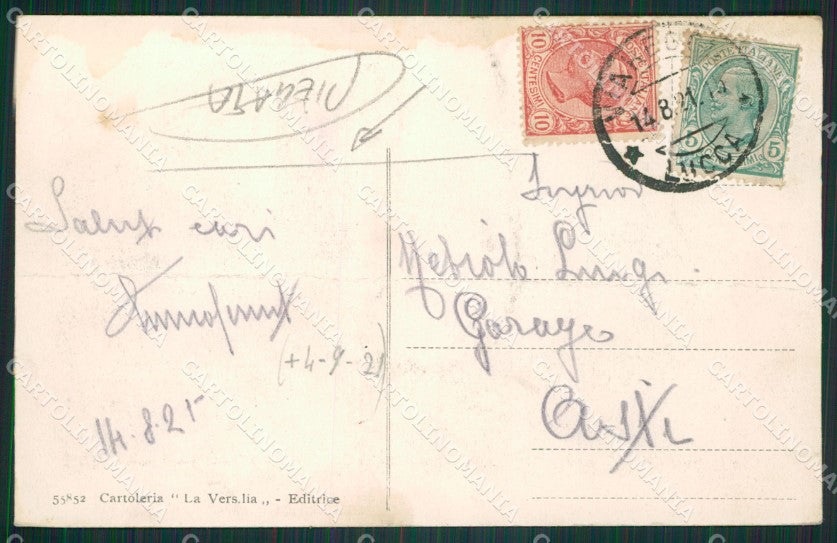 PIEGATA
POSTE ITALIANE
10 CENTESIMI 10
POSTE ITALIANE
5 5
14.8.21
LUCCA
Saluti cari
(+4-9-21)
14.8.21
Signor
Nebiolo Luigi
Garage
Asti
55852 Cartoleria " La Vers.lia „ - Editrice
CARTOLINOMANIA